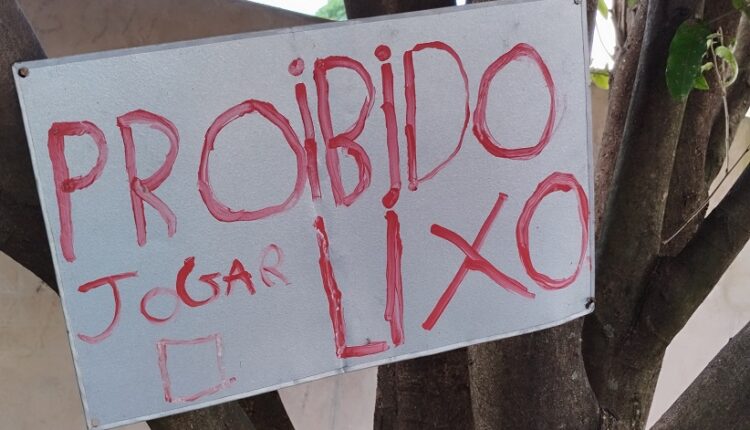 PROiBiDO
JOGAR LiXO